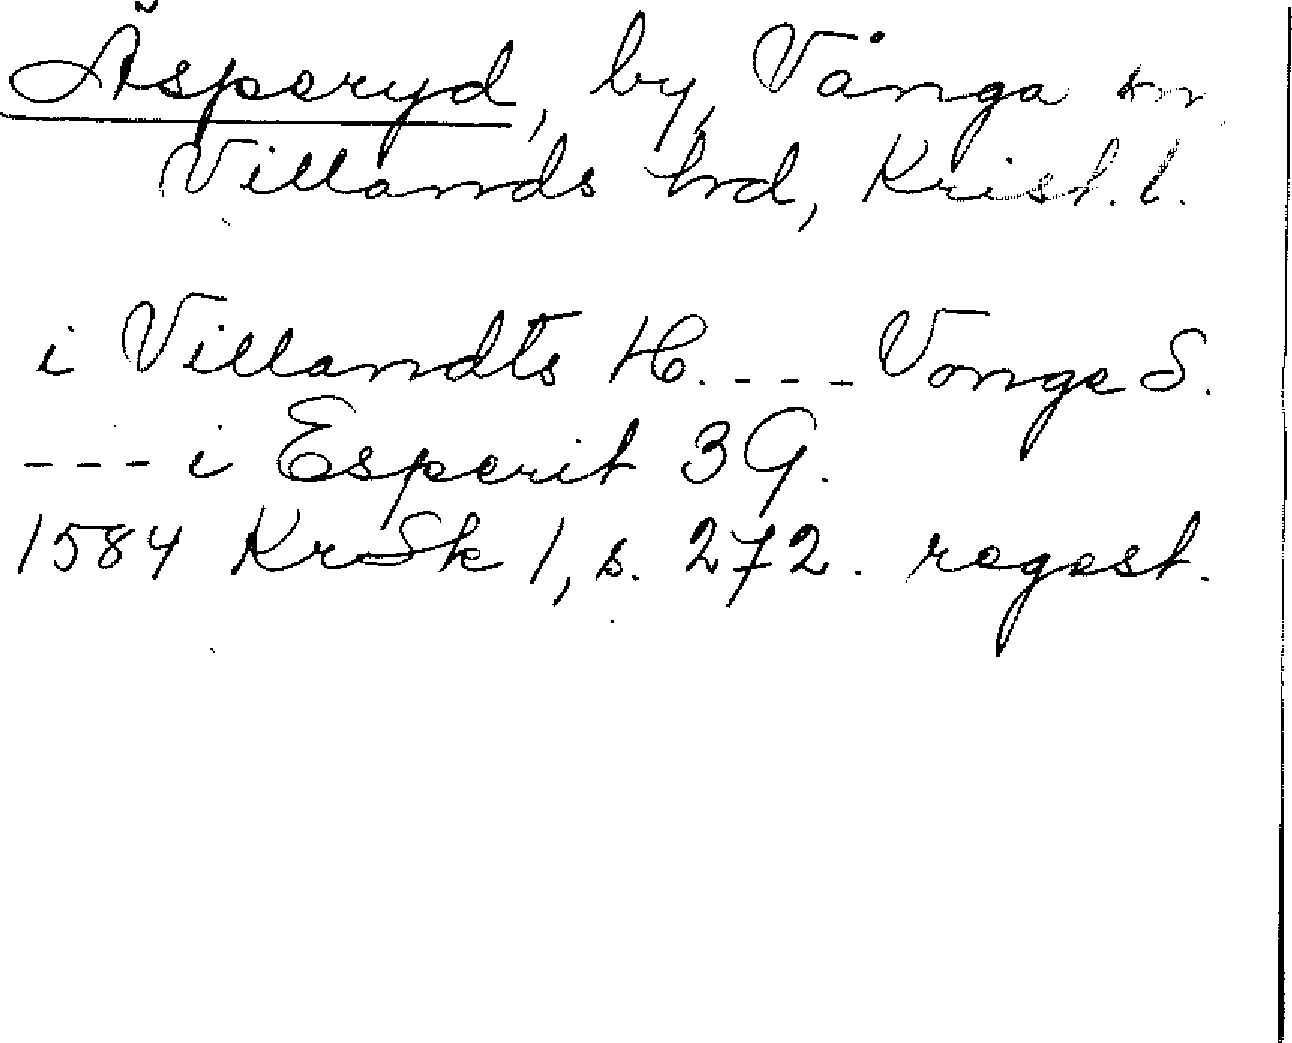 Äsperyd, by, Vånga sn
Villands hrd, Krist. l.
i Villandts H. - - - - Vonge S.
- - - i Esperit 3 G.
1584 KrSk 1, s. 272. regest.